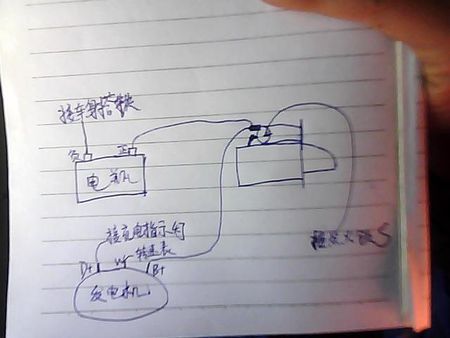 接车身搭铁
负 正
电瓶
接充电指示灯
D+ W 转速表 B+
发电机
接点火锁S